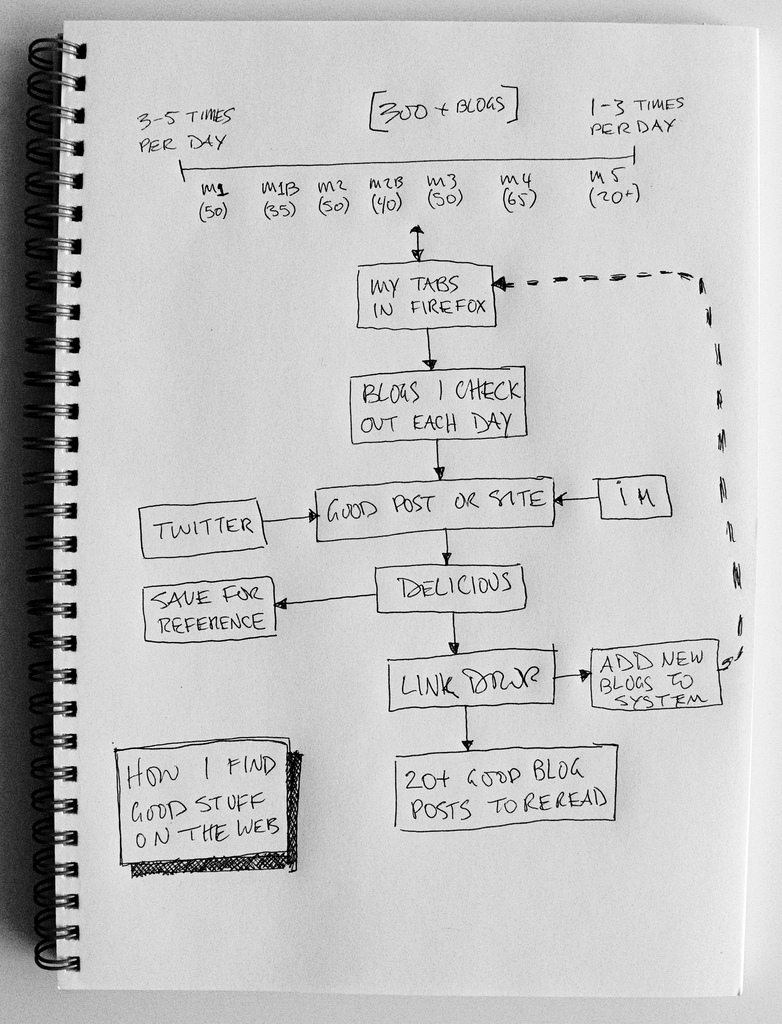 3-5 TIMES
PER DAY
[300 + BLOGS]
1-3 TIMES
PER DAY
M1
(50)
M1B
(35)
M2
(50)
M2B
(40)
M3
(50)
M4
(65)
M5
(20+)
MY TABS
IN FIREFOX
BLOGS I CHECK
OUT EACH DAY
TWITTER
GOOD POST OR SITE
IM
SAVE FOR
REFERENCE
DELICIOUS
LINK DROP
ADD NEW
BLOGS TO
SYSTEM
HOW I FIND
GOOD STUFF
ON THE WEB
20+ GOOD BLOG
POSTS TO REREAD